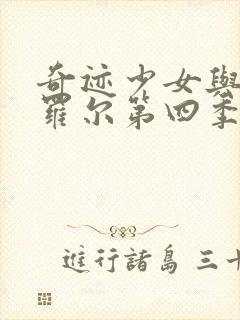 奇迹少女與
羅尔第四季
進行諸島 三十